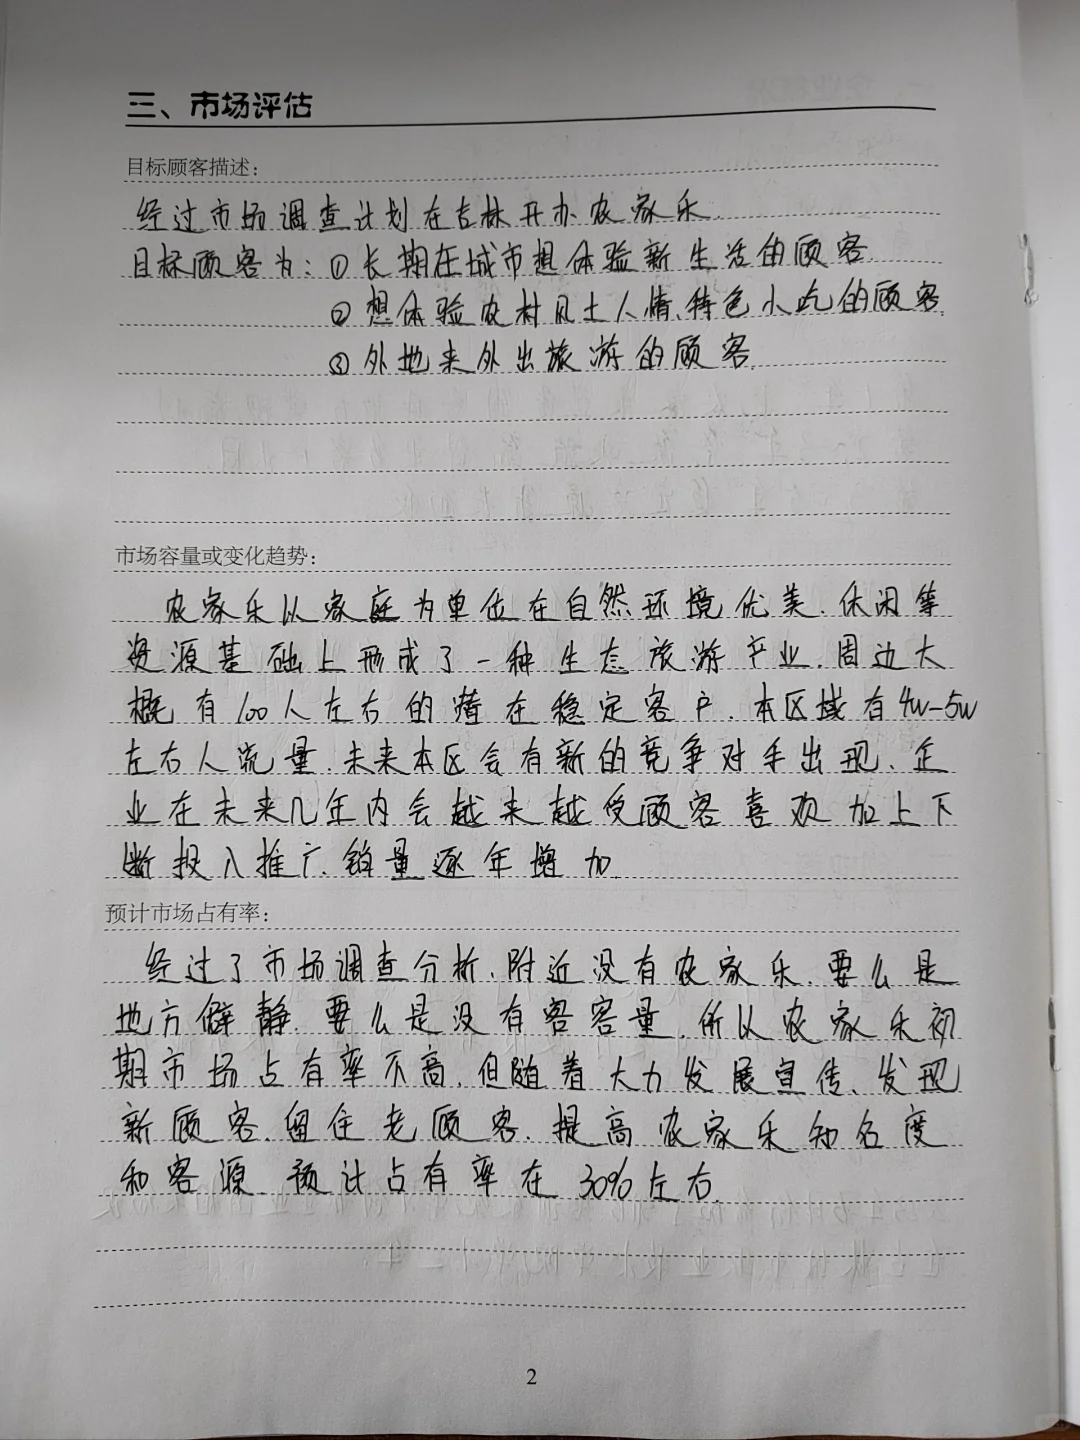 三、市场评估
目标顾客描述：
经过市场调查计划在吉林开办农家乐.
目标顾客为：①长期在城市想体验新生活的顾客.
②想体验农村风土人情、特色小吃的顾客.
③外地来外出旅游的顾客.
市场容量或变化趋势：
农家乐以家庭为单位在自然环境优美、休闲等
资源基础上形成了一种生态旅游产业.周边大
概有100人左右的潜在稳定客户.本区域有4w-5w
左右人流量.未来本区会有新的竞争对手出现、企
业在未来几年内会越来越受顾客喜欢加上下
断投入推广.销量逐年增加.
预计市场占有率：
经过了市场调查分析、附近没有农家乐.要么是
地方僻静.要么是没有客容量.所以农家乐初
期市场占有率不高.但随着大力发展宣传、发现
新顾客.留住老顾客.提高农家乐知名度
和客源.预计占有率在30%左右.
2